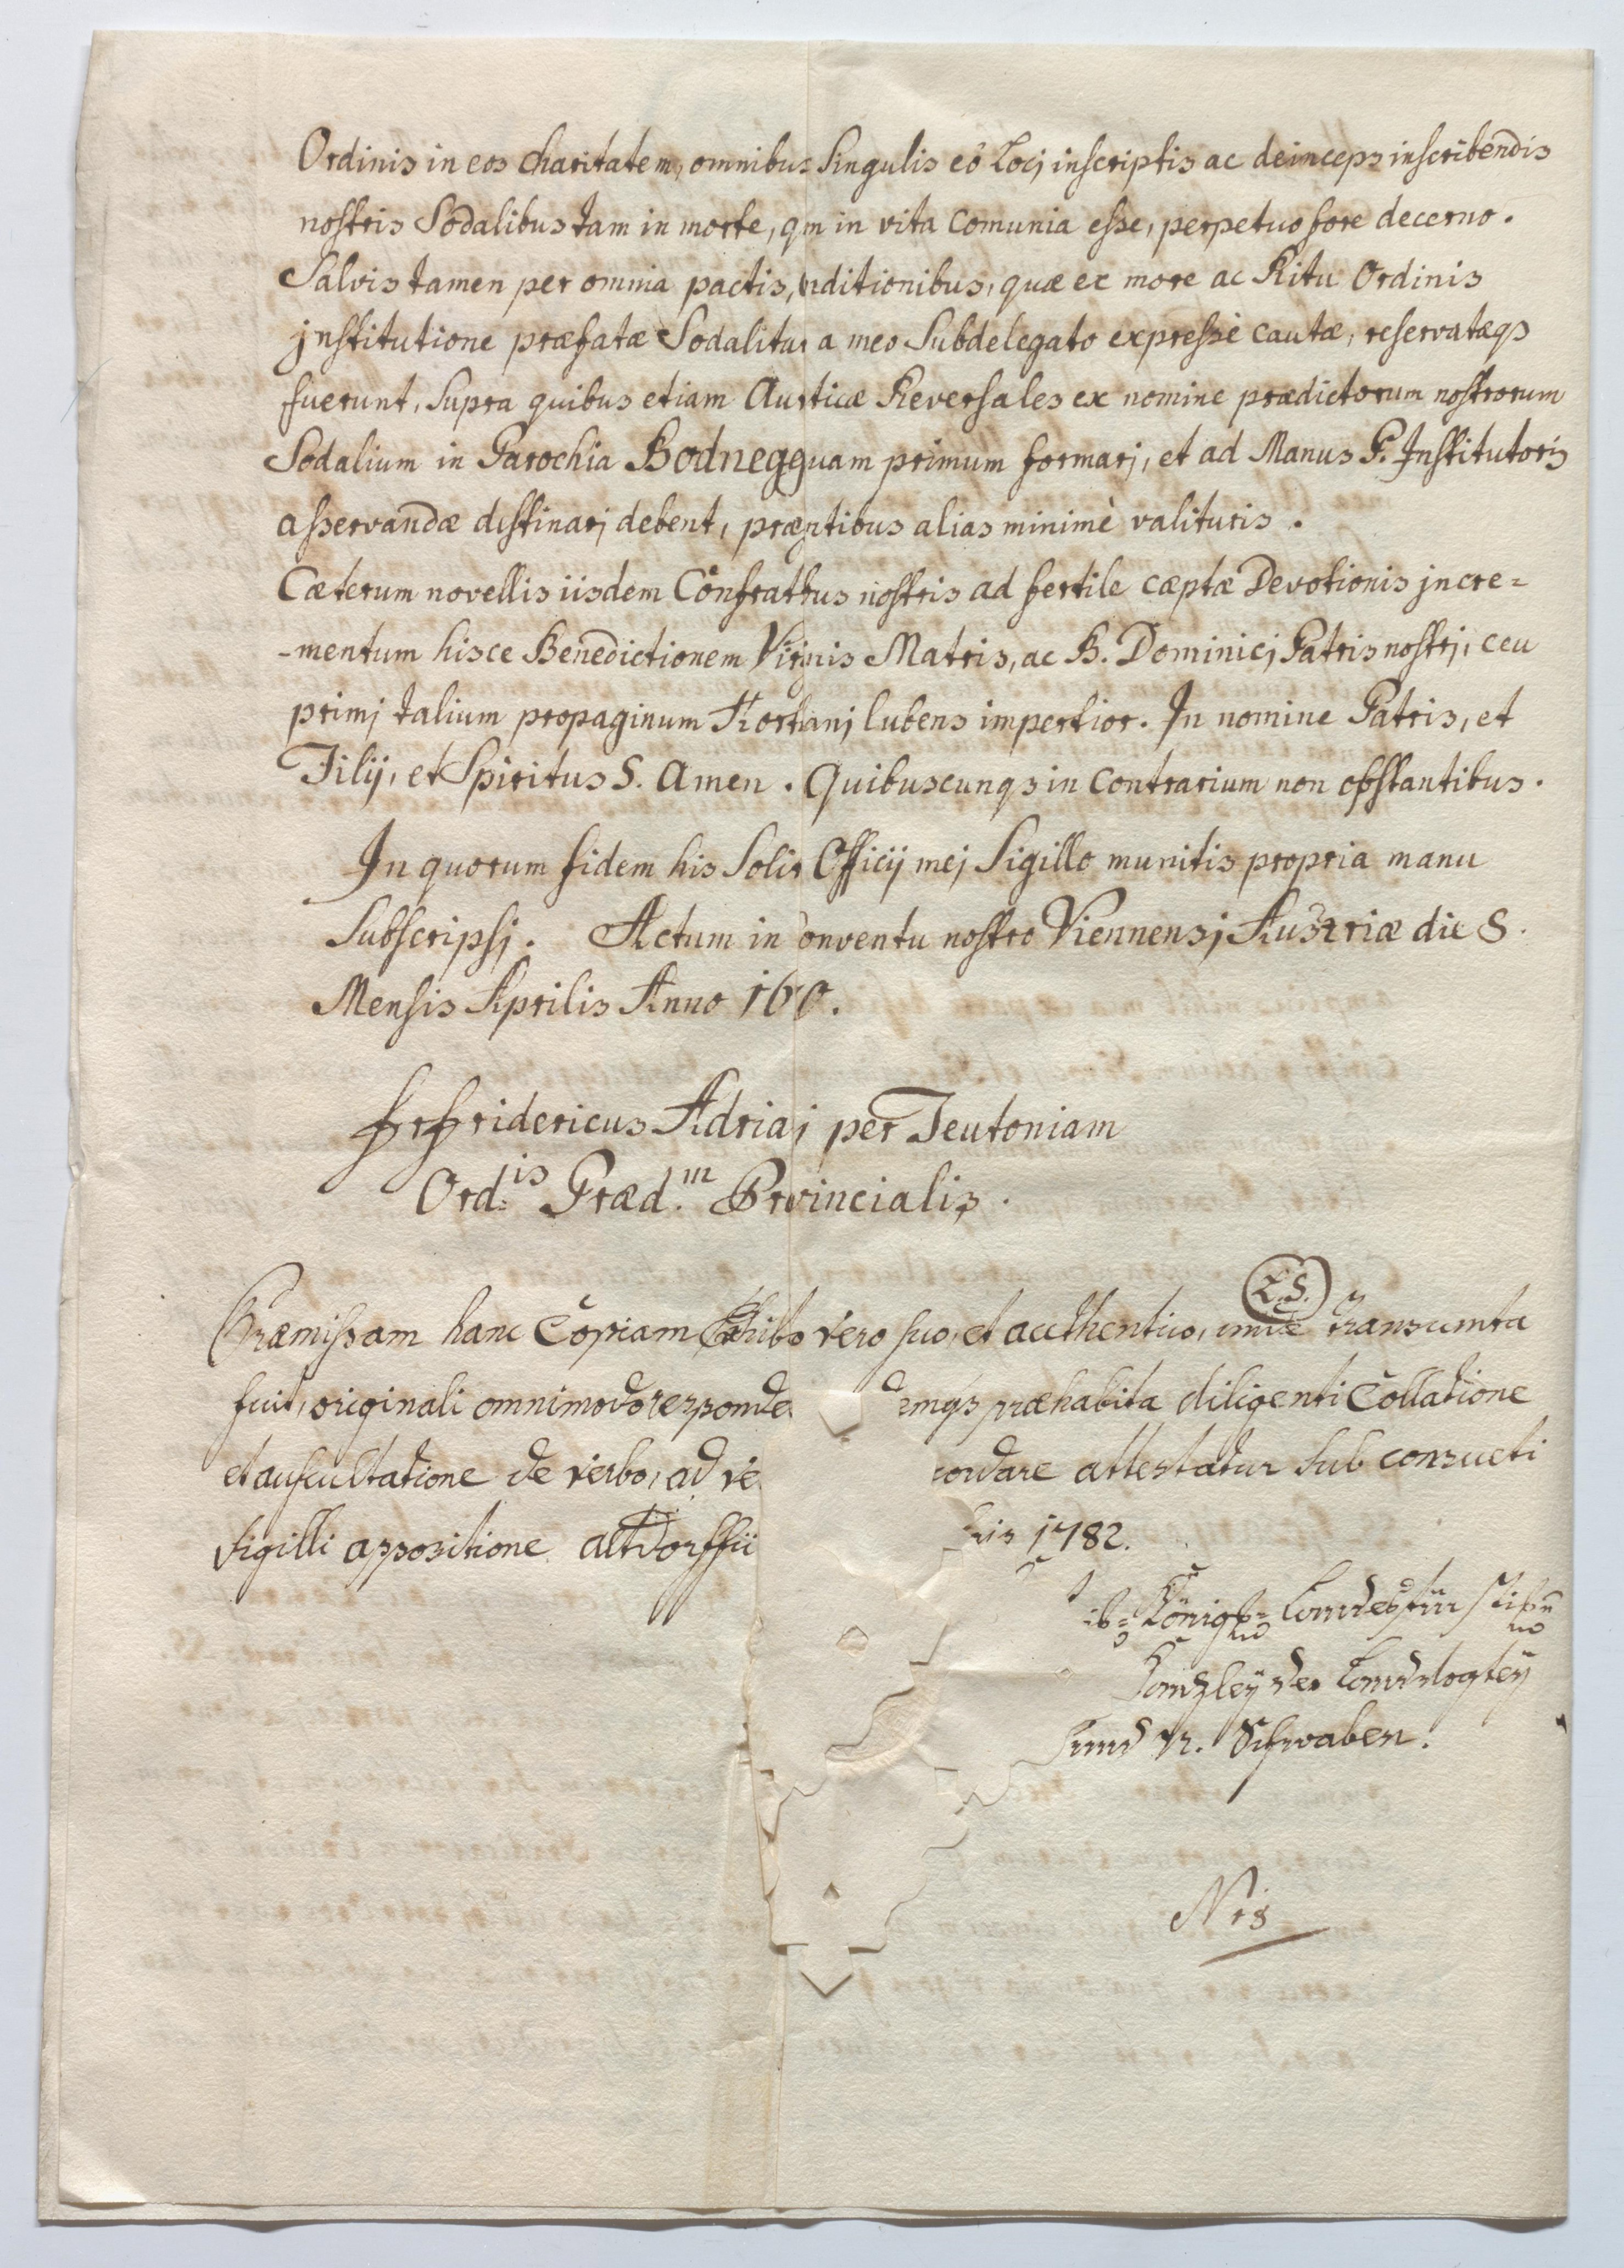 Ordinis in eos charitatem, omnibus Singulis eō Locj inscriptis ac deinceps inscribendis
nostris Sodalibus tam in morte, qm in vita comunia esse, perpetuo fore decerno.
Salvis tamen per omnia pactis, nditionibus, quæ ex more ac Ritu Ordinis
jnstitutione præfatæ Sodalitus a meo Subdelegato expressè cautæ, reservatæqs
fuerunt, Supra quibus etiam Reversales ex nomine prædictorum nostrorum
Sodalium in Parochia Bodnegg quam primum formarj, et ad Manus P. Institutoris
asservandæ distinarj debent, præntibus alias minimè valituris.
Cæterum novellis iisdem Confratrbus nostris ad fertile cæptæ Devotionis jncre=
-mentum hisce Benedictionem Virginis Matris, ac B. Dominicj Patris nostrj, ceu
primj talium propaginum Hortanj lubens impertior. In nomine Patris, et
Filij, et Spiritus S. Amen. Quibuscunqs in contrarium non obstantibus.
In quorum fidem his Solis Officij mej Sigillo munitis propria manu
Subscripsj. Actum in onventu nostro Viennensj Austriæ die 8.
Mensis Aprilis Anno
Fr Fridericus Adriaj per Teutoniam
Ord:is Præd.m Provincialis.
L.S.
Præmissam hanc Copiam vero suo, et authentico, unde transumta
fuit, originali omnimodo responde præhabita diligenti Collatione
et auscultatione de verbo, ad ve cordare attestatur sub consueti
sigilli appositione. altdorffii bris 1782.
Königl.
Kanzley der Landvogtey
Schwaben.